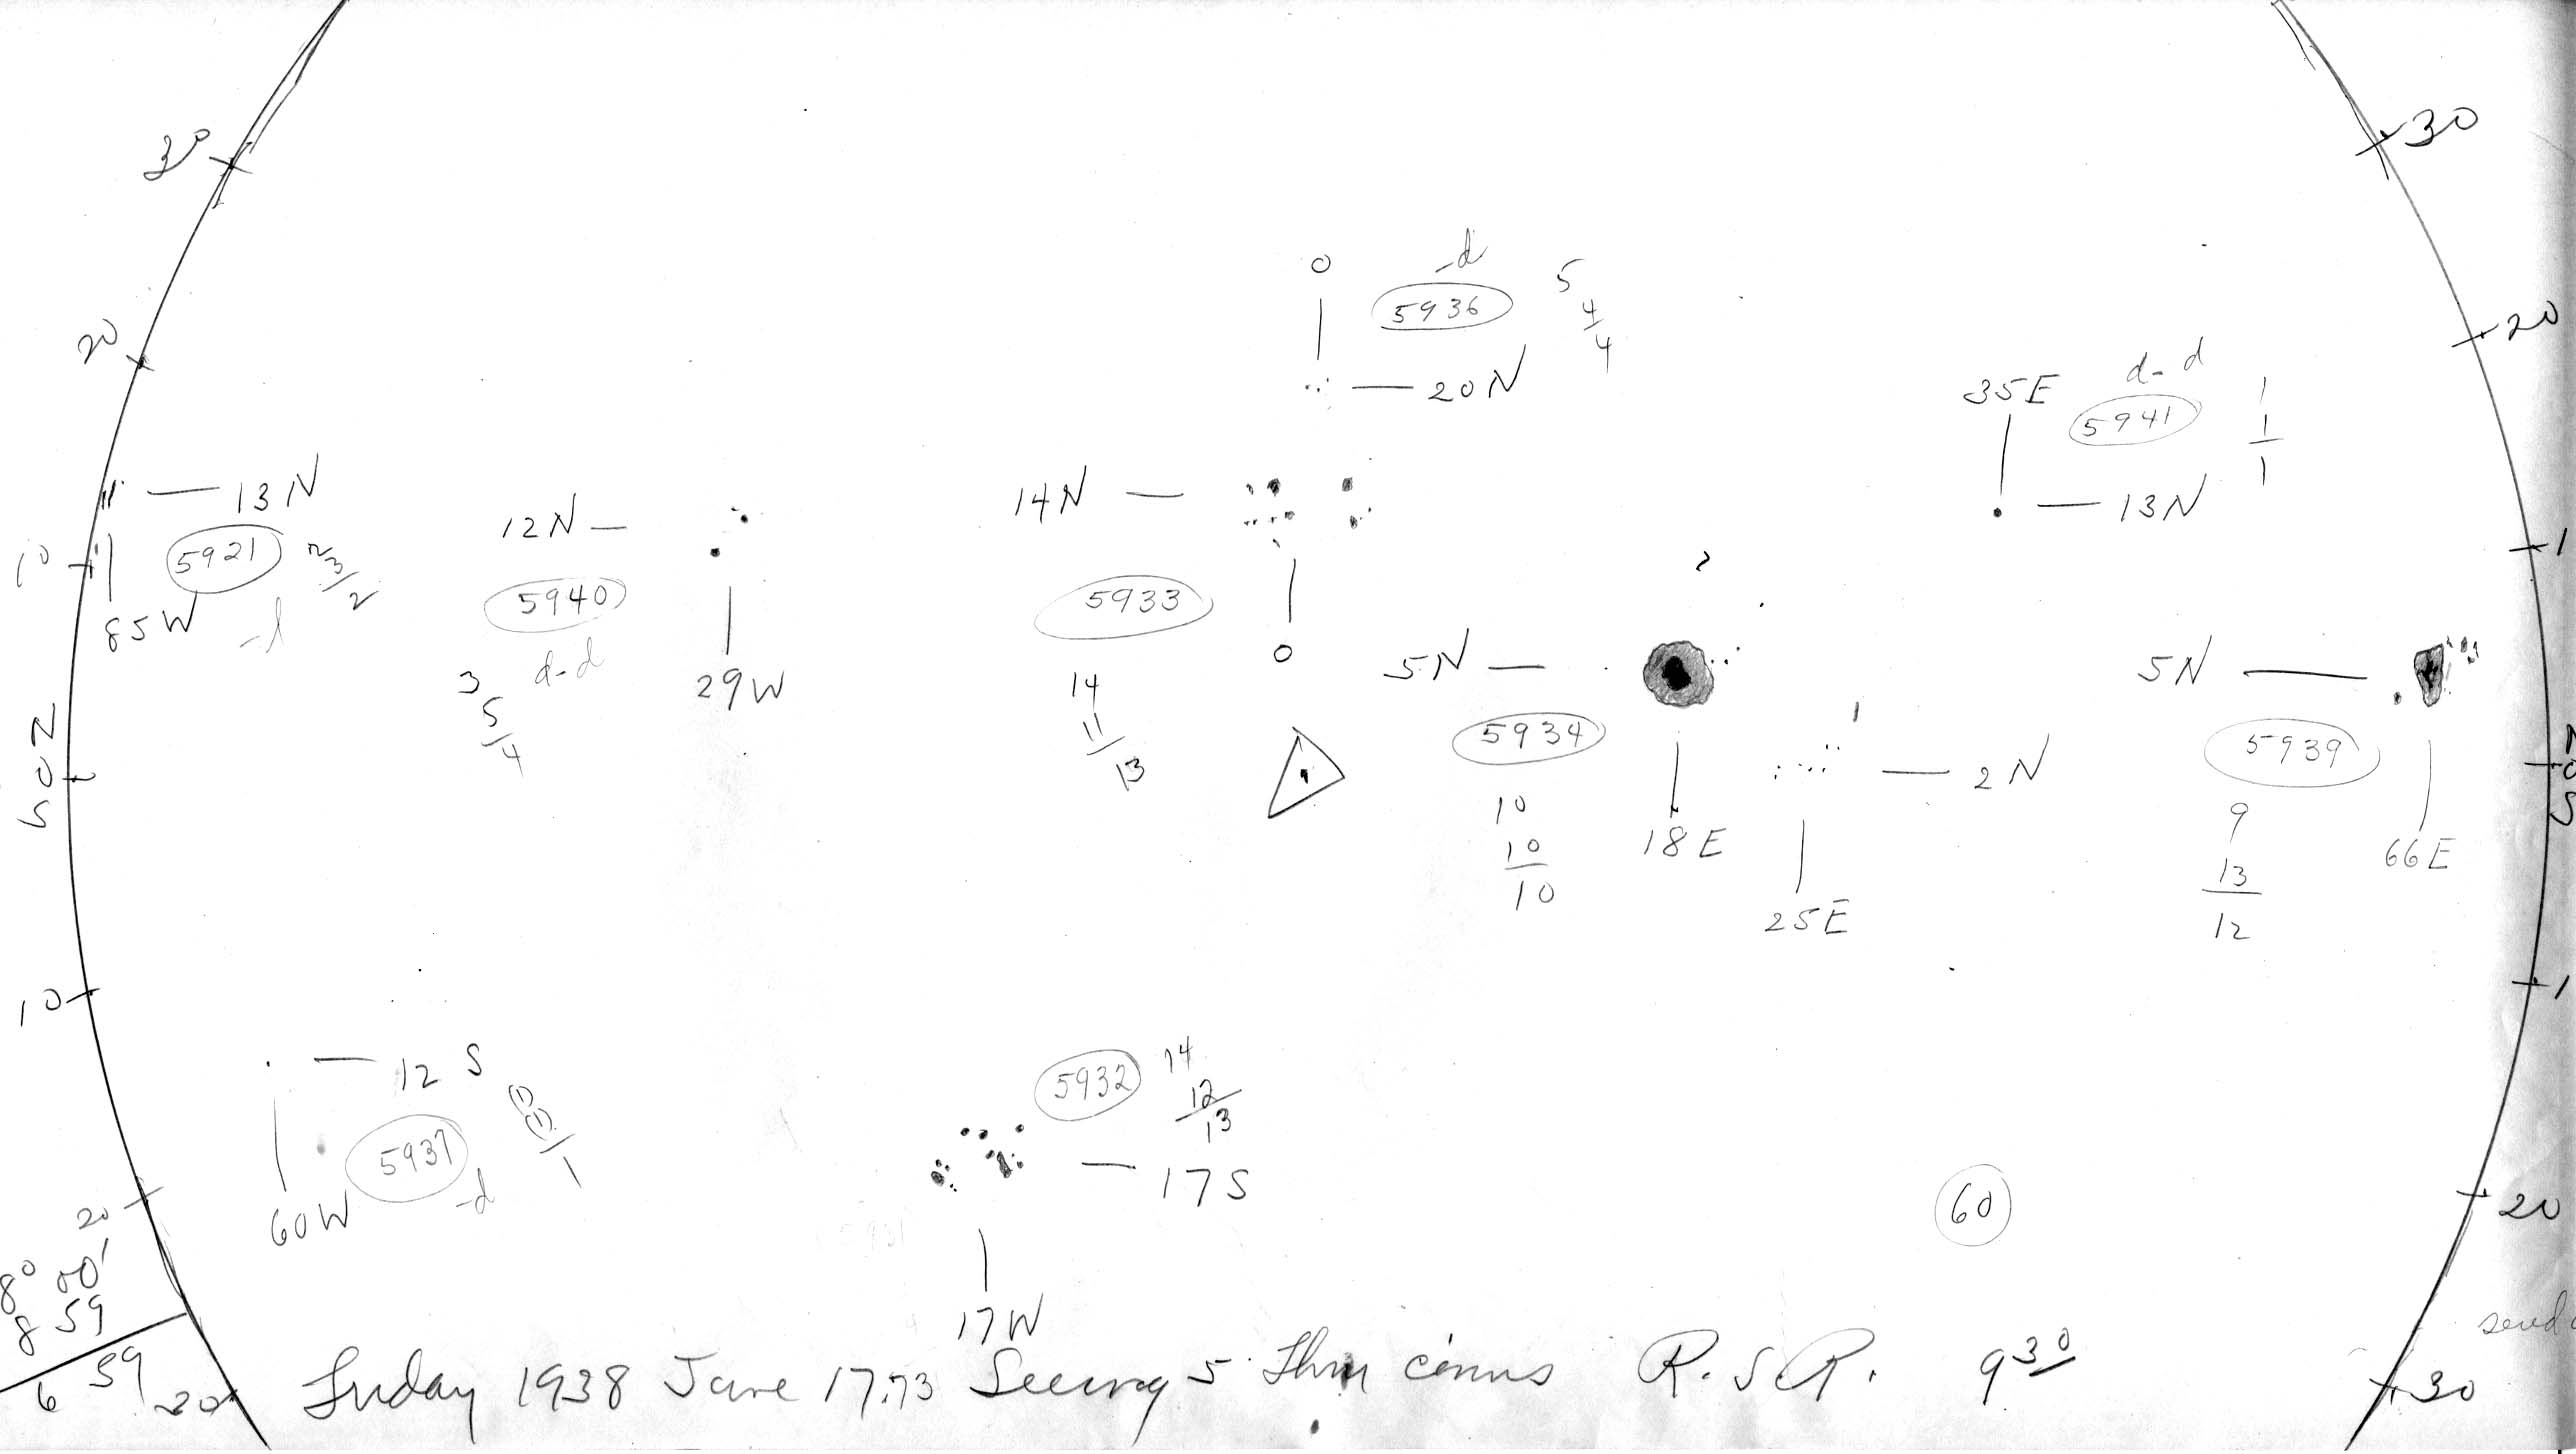 30
30
0
-d
5936
5
4
4
20N
20
20
35E
d-d
5941
1
1
1
13N
13N
5921
2
3/2
85W
12N
5940
d-d
3
5/4
29W
14N
5933
0
14
11/13
10
1
5N
5934
10
10
10
18E
2N
25E
5N
5939
9
13
12
66E
N
0
S
N
0
S
10
1
12 S
5937
(1)
(1)/1
-d
60W
5932
14
12
13
17S
17W
60
20
20
8° 00'
8 59
6 59
30
Friday 1938 June 17.73 Seeing 5 Thru cirrus R.S.R. 9 30
30